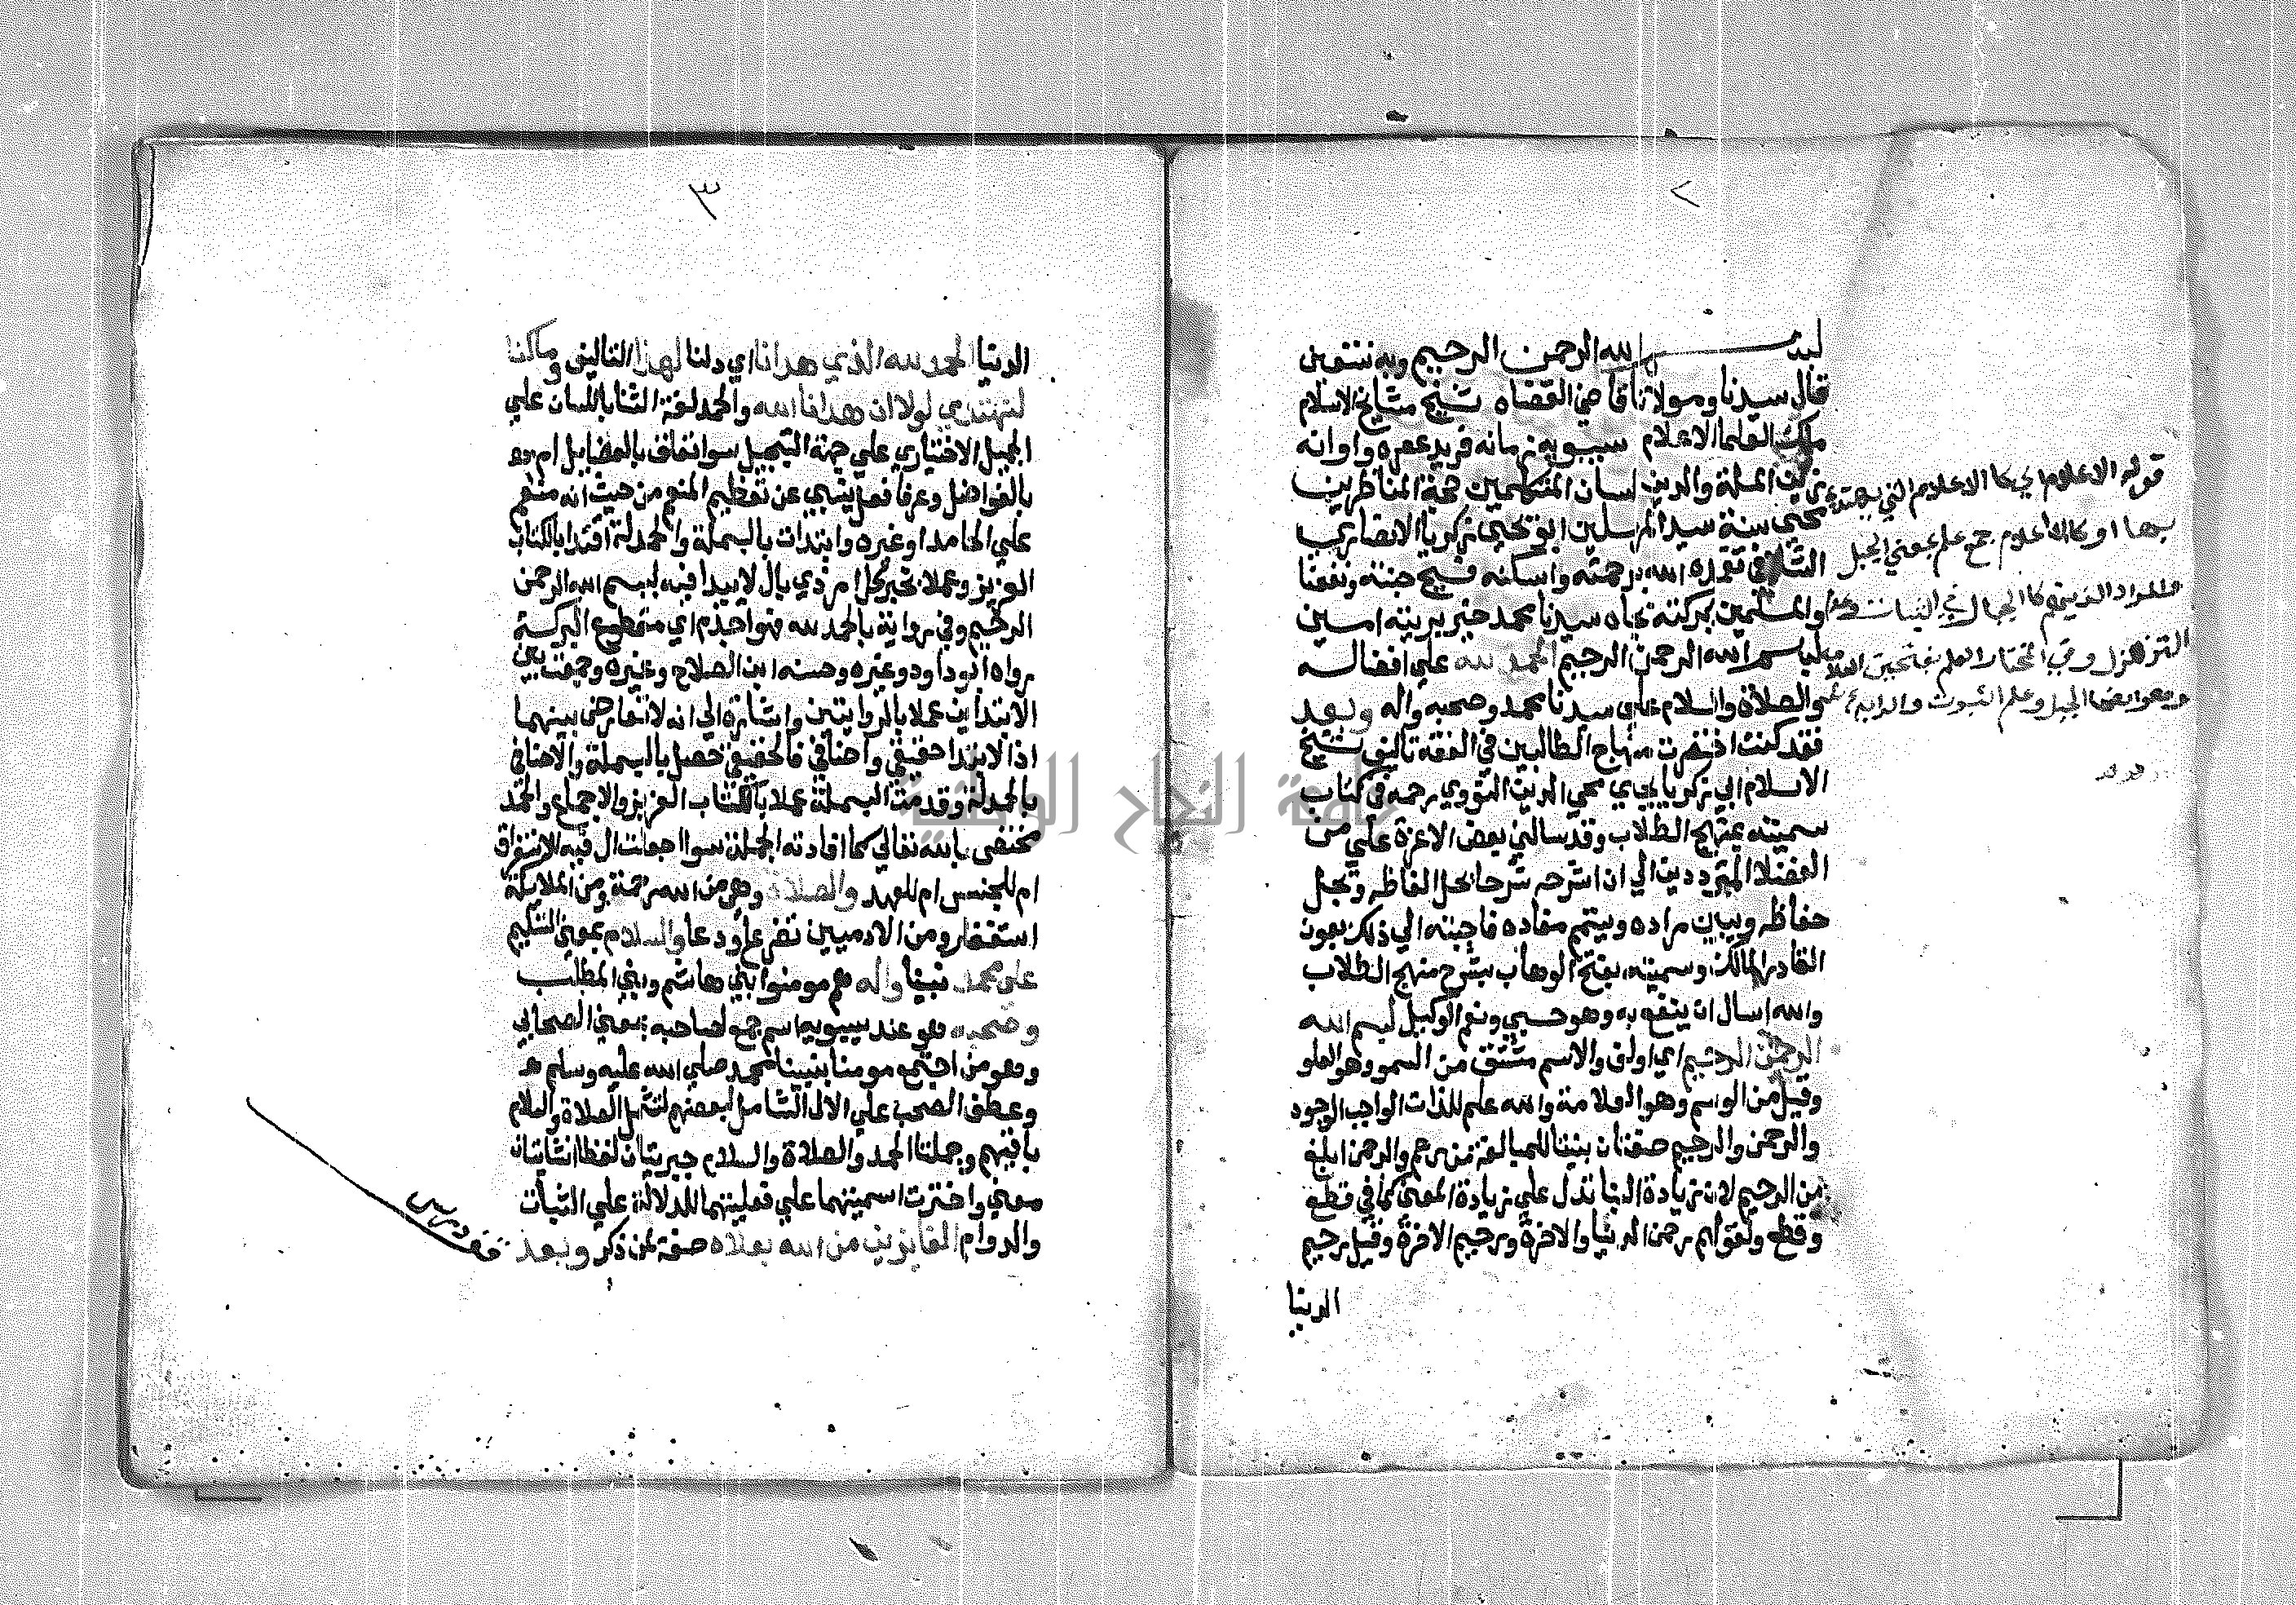 ٢
بسم الله الرحمن الرحيم وبه نستعين
قال سيدنا ومولانا قاضي القضاه شيخ مشايخ الاسلام
ملك العلما الاعلام سيبويه زمانه فريد عصره واوانه
زين الملة والدين لسان المتكلمين حجة المناظرين
محيي سنة سيد المرسلين ابو يحيي زكريا الانصاري
الشافعي تغمده الله برحمته واسكنه فسيح جنته ونفعنا
والمسلمين ببركته بجاه سيدنا محمد خير بريته امين
بسم الله الرحمن الرحيم الحمد لله علي افضاله
والصلاة والسلام علي سيدنا محمد وصحبه واله وبعد
فقد كنت اختصرت منهاج الطالبين في الفقه تاليف شيخ
الاسلام ابي زكريا يحيي محي الدين النووي رحمه في كتاب
سميته بمنهج الطلاب وقد سالني بعض الاعزة علي من
الفضلا المترددين الي ان اشرحه شرحا يحل الفاظه ويجل
حفاظه ويبين مراده ويتمم مفاده فاجبته الي ذلك بعون
القادر المالك وسميته بفتح الوهاب بشرح منهج الطلاب
والله اسال ان ينفع به وهو حسبي ونعم الوكيل بسم الله
الرحمن الرحيم اي اولف والاسم مشتق من السمو وهو العلو
وقيل من الوسم وهو العلامة والله علم للذات الواجب الوجود
والرحمن والرحيم صفتان بنيتا للمبالغة من رحم والرحمن ابلغ
من الرحيم لان زيادة البنا تدل علي زيادة المعني كما في قطع
وقطع ولقولهم رحمن الدنيا والاخرة ورحيم الاخرة وقيل رحيم
الدنيا
قوله الاعلام اي كالاعلام التي يهتدي
بها او كالاعلام جمع علم بمعني الجبل
والمراد الذين هم كالجبال في الثبات وعدم
التزلزل وفي المختار العلم بفتحتين العلامة
وهو ايضا الجبل وعلم الثوب والراية
٣
الدنيا الحمد لله الذي هدانا اي دلنا لهذا التاليف وما كنا
لنهتدي لولا ان هدانا الله والحمد لغة الثنا باللسان علي
الجميل الاختياري علي جهة التبجيل سوا تعلق بالفضايل ام
بالفواضل وعرفا فعل ينبي عن تعظيم المنعم من حيث انه منعم
علي الحامد او غيره وابتدات بالبسملة والحمدلة اقتدا بالكتاب
العزيز وعملا بخبر كل امر ذي بال لا يبدا فيه ببسم الله الرحمن
الرحيم وفي رواية بالحمد لله فهو اجذم اي مقطوع البركة
رواه ابو داود وغيره وحسنه ابن الصلاح وغيره وجمعت بين
الابتداين عملا بالروايتين واشارة الي انه لا تعارض بينهما
اذ الابتدا حقيقي واضافي فالحقيقي حصل بالبسملة والاضافي
بالحمدلة وقدمت البسملة عملا بالكتاب العزيز والاجماع والحمد
مختص بالله تعالي كما افادته الجملة سوا اجعلت ال فيه للاستغراق
ام للجنس ام للعهد والصلاة وهي من الله رحمة ومن الملايكة
استغفار ومن الادميين تضرع ودعا والسلام بمعني التسليم
علي محمد نبينا واله هم مومنوا بني هاشم وبني المطلب
وصحبه هو عند سيبويه اسم جمع لصاحبه بمعني الصحابي
وهو من اجتمع مومنا بنبينا محمد صلي الله عليه وسلم
وعطف الصحب علي الال الشامل لبعضهم لتشمل الصلاة والسلام
باقيهم وجملتا الحمد والصلاة والسلام خبريتان لفظا انشايتان
معني واخترت اسميتهما علي فعليتهما للدلالة علي الثبات
والدوام الفايزين من الله بعلاه صفة لمن ذكر وبعد
جامعة النجاح الوطنية